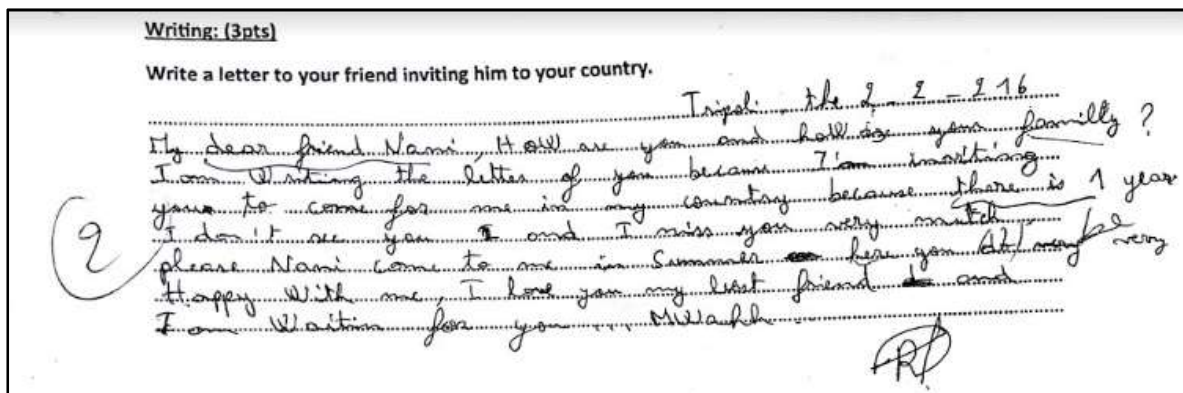 Writing: (3pts)
Write a letter to your friend inviting him to your country.
Tripoli, the 2 - 2 - 216
My dear friend Nami, How are you and how is your familly ?
I am Writing the letter of you because I'am inviting
your to come for me in my country because there is 1 year
I don't see you and I miss you very mutch
please Nami come to me in Summer here you be very
Happy With me, I love you my best friend and
I am Waitin for you ... MWahh
2